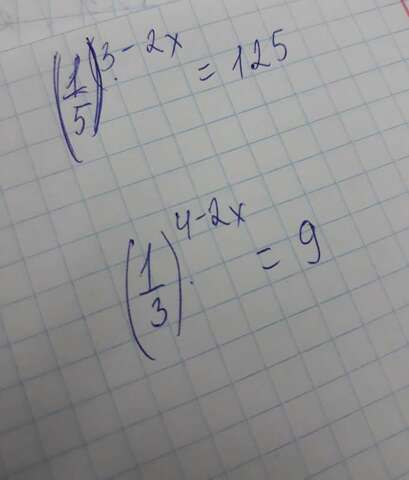 (1/5)^{3-2x} = 125
(1/3)^{4-2x} = 9